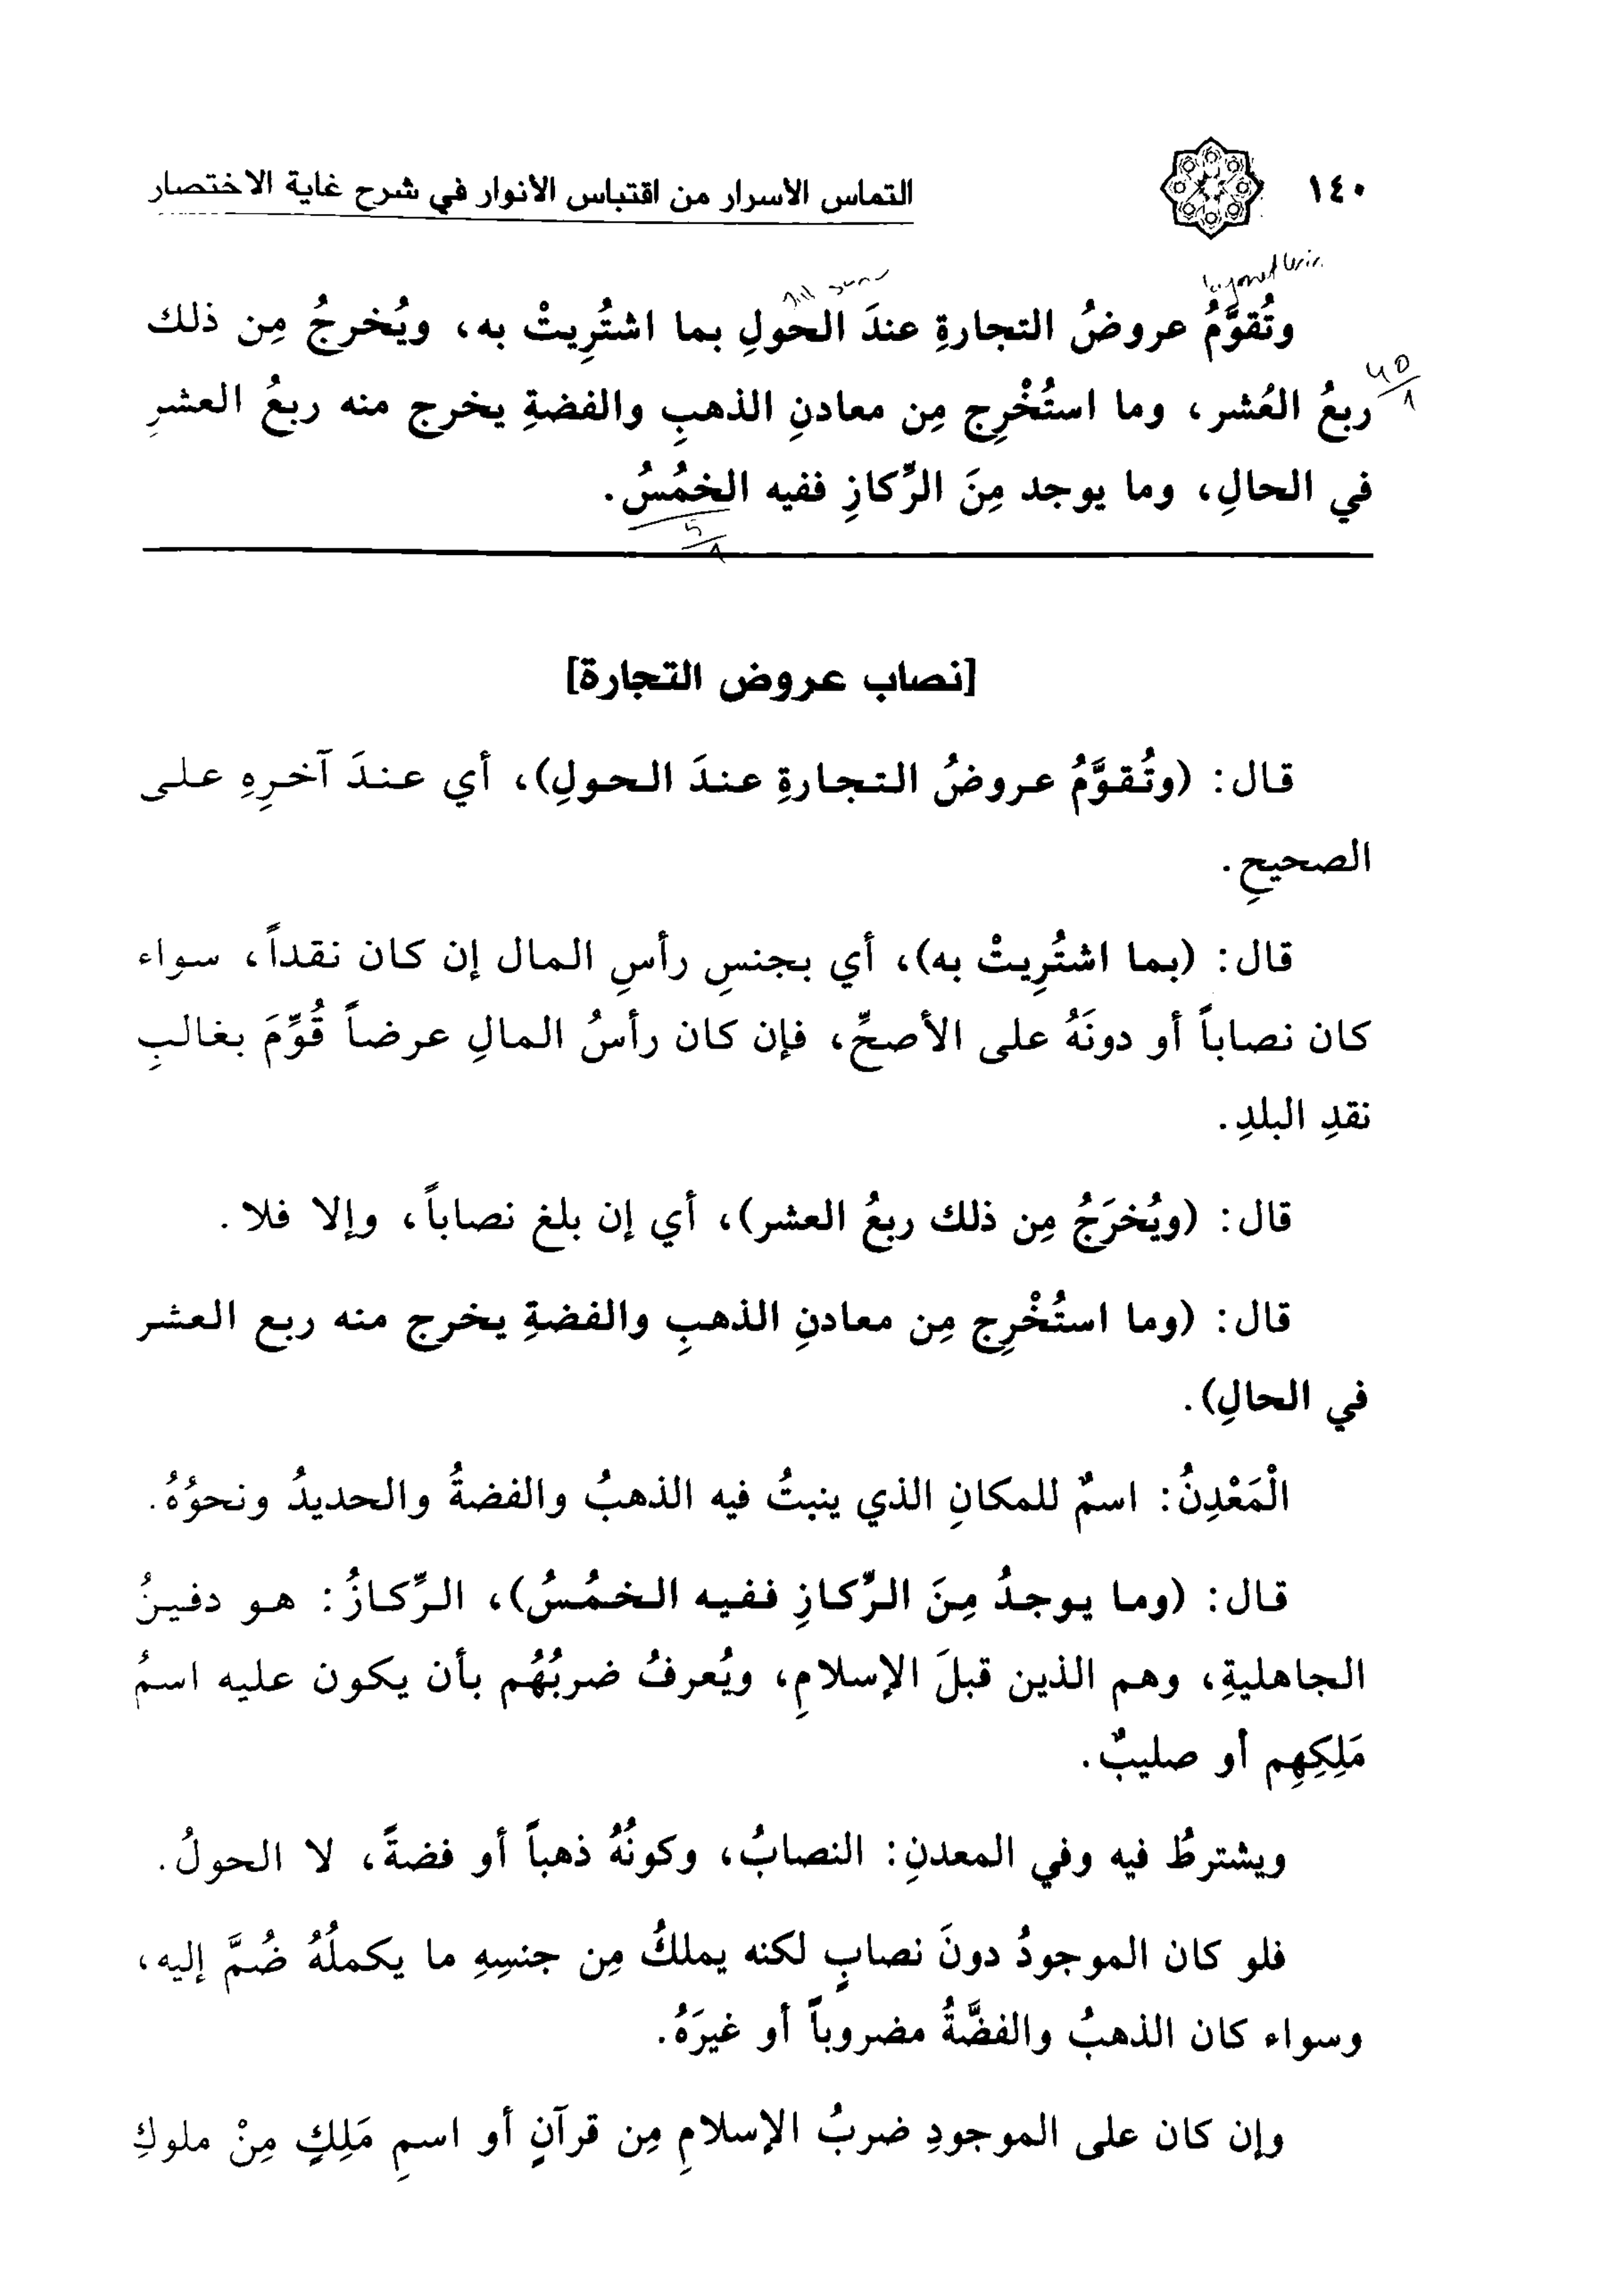 ١٤٠
التماس الأسرار من اقتباس الأنوار في شرح غاية الاختصار
وتُقوَّمُ عروضُ التجارةِ عندَ الحَولِ بما اشتُرِيتْ به، ويُخرجُ مِن ذلك
40/1
ربعُ العُشر، وما استُخْرِج مِن معادنِ الذهبِ والفضةِ يخرج منه ربعُ العشرِ
في الحالِ، وما يوجد مِنَ الرِّكازِ ففيه الخمُسُ.
5/1
[نصاب عروض التجارة]
قال: (وتُقوَّمُ عروضُ التجارةِ عندَ الحولِ)، أي عندَ آخرِهِ على
الصحيحِ.
قال: (بما اشتُرِيتْ به)، أي بجنسِ رأسِ المال إن كان نقداً، سواء
كان نصاباً أو دونَهُ على الأصحِّ، فإن كان رأسُ المالِ عرضاً قُوِّمَ بغالبِ
نقدِ البلدِ.
قال: (ويُخرَجُ مِن ذلك ربعُ العشر)، أي إن بلغ نصاباً، وإلا فلا.
قال: (وما استُخْرِج مِن معادنِ الذهبِ والفضةِ يخرج منه ربع العشر
في الحالِ).
الْمَعْدِنُ: اسمٌ للمكانِ الذي ينبتُ فيه الذهبُ والفضةُ والحديدُ ونحوُهُ.
قال: (وما يوجدُ مِنَ الرِّكازِ ففيه الخمُسُ)، الرِّكازُ: هو دفينُ
الجاهليةِ، وهم الذين قبلَ الإسلامِ، ويُعرفُ ضربُهُم بأن يكون عليه اسمُ
مَلِكِهِم أو صليبٌ.
ويشترطُ فيه وفي المعدنِ: النصابُ، وكونُهُ ذهباً أو فضةً، لا الحولُ.
فلو كان الموجودُ دونَ نصابٍ لكنه يملكُ مِن جنسِهِ ما يكملُهُ ضُمَّ إليه،
وسواء كان الذهبُ والفضَّةُ مضروباً أو غيرَهُ.
وإن كان على الموجودِ ضربُ الإسلامِ مِن قرآنٍ أو اسمِ مَلِكٍ مِنْ ملوكِ